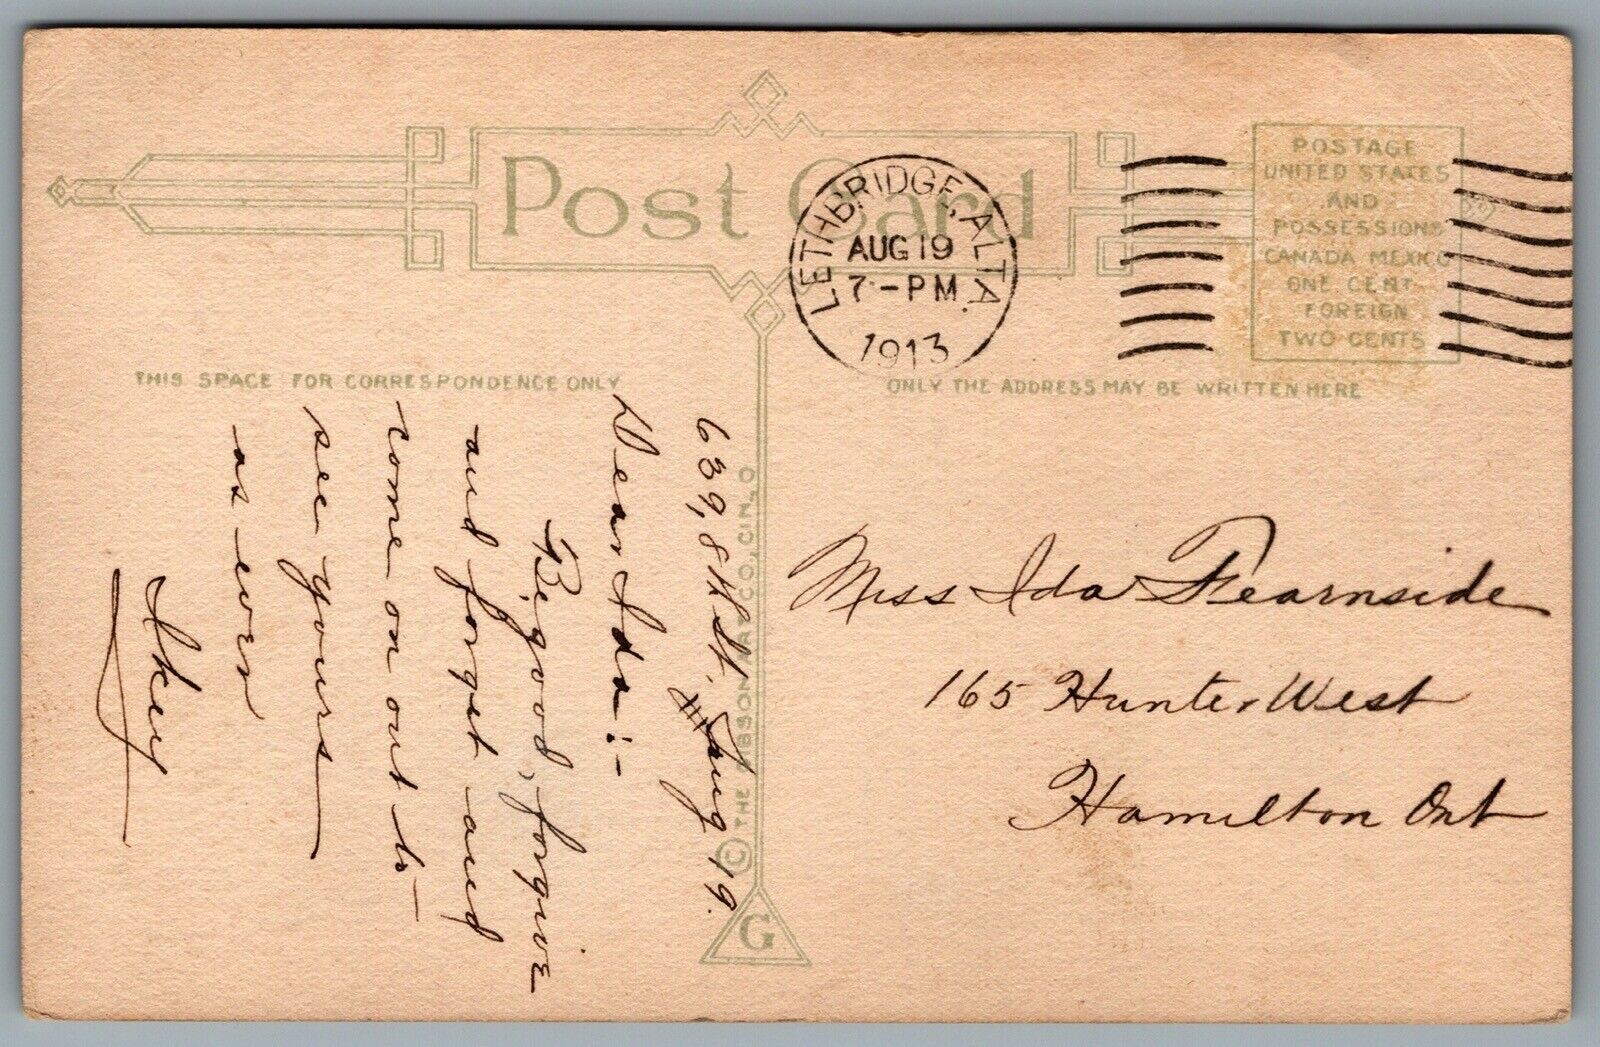 Post Card
LETHBRIDGE, ALTA.
AUG 19
7 - PM
1913
POSTAGE
UNITED STATES
AND
POSSESSIONS
CANADA MEXICO
ONE CENT
FOREIGN
TWO CENTS
THIS SPACE FOR CORRESPONDENCE ONLY
ONLY THE ADDRESS MAY BE WRITTEN HERE
639, 8th St, Aug 19.
Dear Ida:-
Be good, forgive
and forget and
come on out to
see yours
as ever
Ikey
© THE GIBSON ART CO., CIN., O
G
Miss Ida Fearnside
165 Hunter West
Hamilton Ont